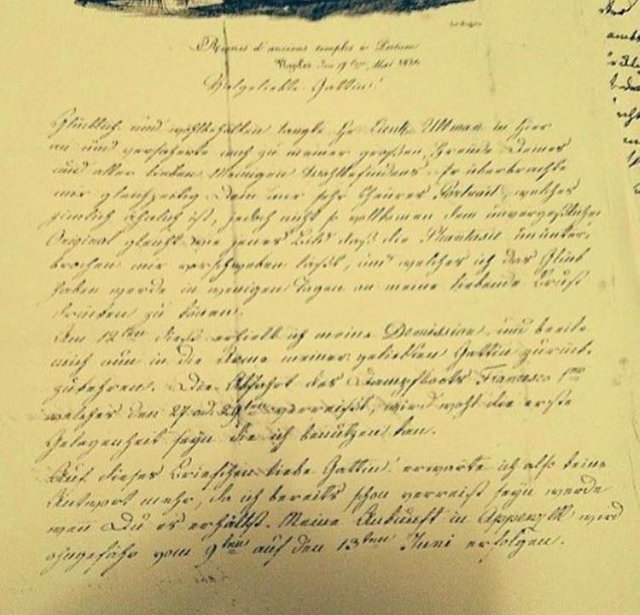 Ruines d'anciens temples à Pestum
Naples den 19ten Mai 1834
Vielgeliebte Gattin!
Glücklich und wohlbehalten langte Hr Lieut. Ullman in hier
an und versicherte mich zu meiner großen Freude Deines
und aller lieben Meinigen Wohlbefindens. Er überbrachte
mir gleichzeitig Dein mir sehr theures Portrait, welches
zimlich ähnlich ist, jedoch nicht so vollkomen dem unvergeßlichen
Original gleicht wie jenes Bild daß die Phantasie ununter-
brochen mir vorschweben lasst, und welches ich das Glük
haben werde in wenigen Tagen an meine liebende Brust
drücken zu könen.
Den 12ten dieß erhielt ich meine Demission, und bereite
mich nun in die Arme meiner geliebten Gattin zurük-
zukehren. Die Abfahrt des Dampfboots Francesco 1mo
welches den 27 ad 29ten verreisst, wird wohl die erste
Gelegenheit seyn die ich benützen kan.
Auf dieses Briefchen liebe Gattin! erwarte ich also keine
Antwort mehr, da ich bereits schon verreist seyn werde
wen Du es erhältst. Meine Ankunft in Appenzell wird
ohngefähr vom 9ten auf den 13ten Juni erfolgen.